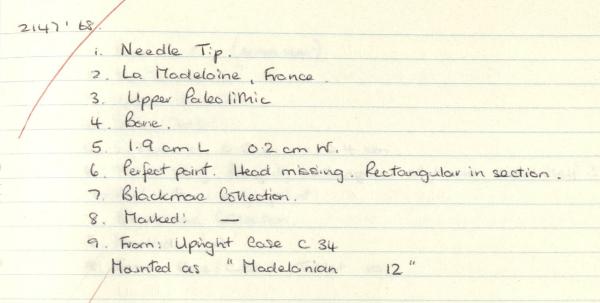 2147'68.
1. Needle Tip.
2. La Madelaine, France.
3. Upper Paleolithic
4. Bone.
5. 1.9 cm L 0.2 cm W.
6. Perfect point. Head missing. Rectangular in section.
7. Blackmore Collection.
8. Marked: —
9. From: Upright Case C 34
Mounted as "Madelanian 12"